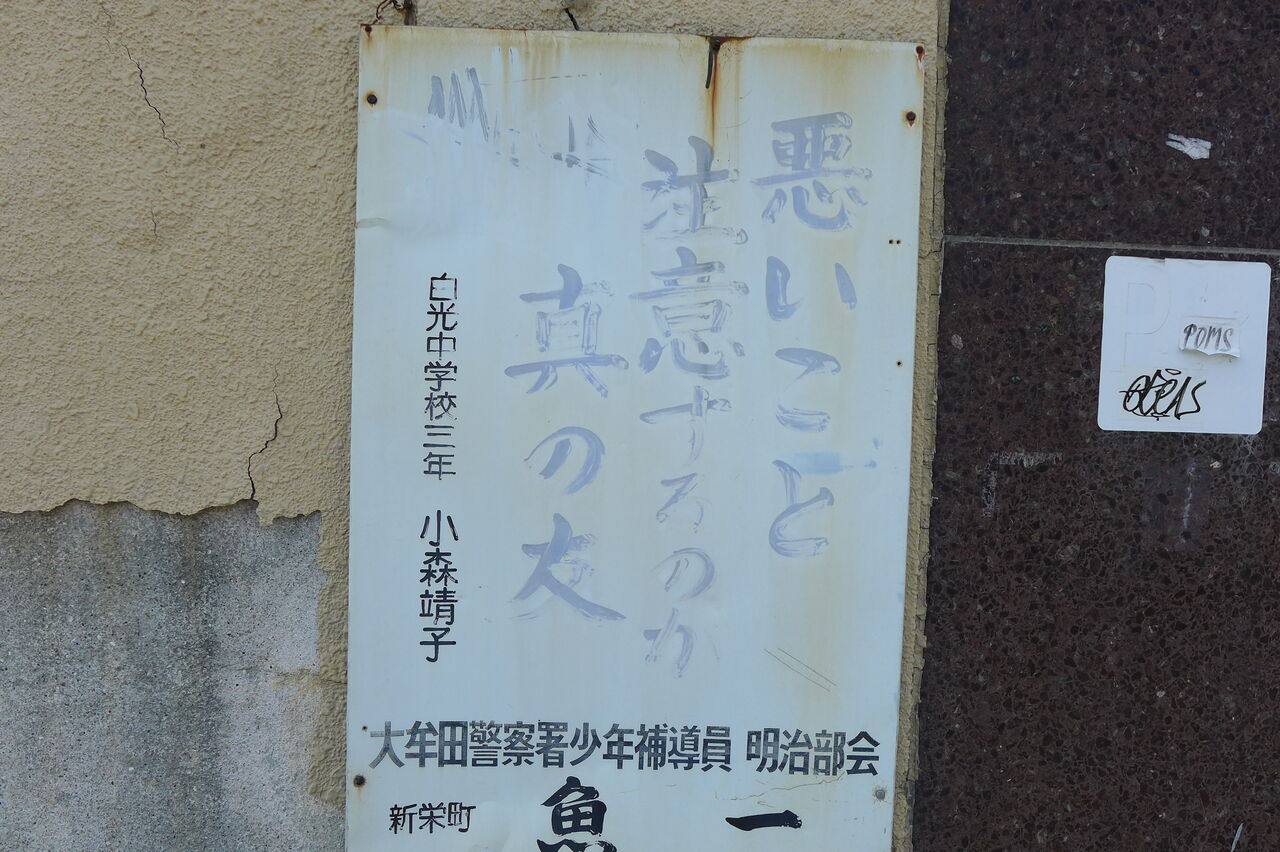 悪いこと
注意するのが
真の大
白光中学校三年 小森靖子
大牟田警察署少年補導員 明治部会
新栄町
魚一
POMS